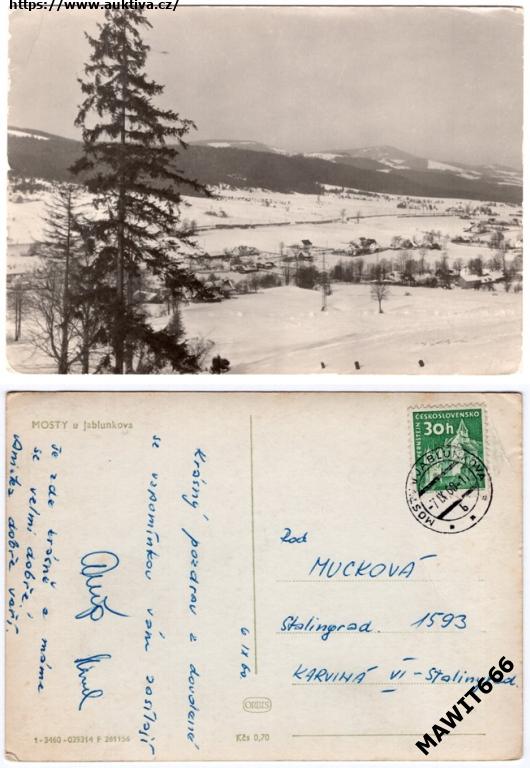 https://www.auktiva.cz/
MOSTY u Jablunkova
Krásný pozdrav z dovolené
se vzpomínkou vám zasílají
Je zde krásně a máme
se velmi dobře.
dobře vaří.
6 IX 60
ČESKOSLOVENSKO
PERNŠTEJN
30h
MOSTY U JABLUNKOVA
-7.IX.60-11
b
Rod
MUCKOVÁ
Stalingrad 1593
KARVINÁ VI - Stalingrad
ORBIS
1-3460-029314 F 261156
Kčs 0,70
MAWIT666